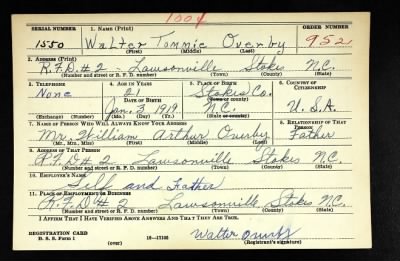 1004
SERIAL NUMBER 1. NAME (Print) ORDER NUMBER
1550 Walter Tommie Overby 952
(First) (Middle) (Last)
2. ADDRESS (Print)
R.F.D# 2 - Lawsonville Stokes N.C.
(Number and street or R. F. D. number) (Town) (County) (State)
3. TELEPHONE 4. AGE IN YEARS 5. PLACE OF BIRTH 6. COUNTRY OF CITIZENSHIP
None 21 Stokes Co.
DATE OF BIRTH (Town or county)
Jan. 3 1919 N.C. U.S.A.
(Exchange) (Number) (Mo.) (Day) (Yr.) (State or country)
7. NAME OF PERSON WHO WILL ALWAYS KNOW YOUR ADDRESS 8. RELATIONSHIP OF THAT PERSON
Mr. William Arthur Overby Father
(Mr., Mrs., Miss) (First) (Middle) (Last)
9. ADDRESS OF THAT PERSON
R.F.D# 2 Lawsonville Stokes N.C.
(Number and street or R. F. D. number) (Town) (County) (State)
10. EMPLOYER'S NAME
Self and Father
11. PLACE OF EMPLOYMENT OR BUSINESS
R.F.D# 2 Lawsonville Stokes N.C.
(Number and street or R. F. D. number) (Town) (County) (State)
I AFFIRM THAT I HAVE VERIFIED ABOVE ANSWERS AND THAT THEY ARE TRUE.
REGISTRATION CARD
D. S. S. Form 1 (over) Walter Overby
(Registrant's signature)